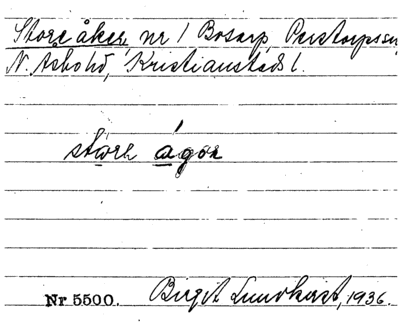 Store åker, nr 1 Bosarp, Perstorps sn,
N. Åsbo hd, Kristianstads l.
stọre ágər
Nr 5500. Birgit Lundkvist, 1936.